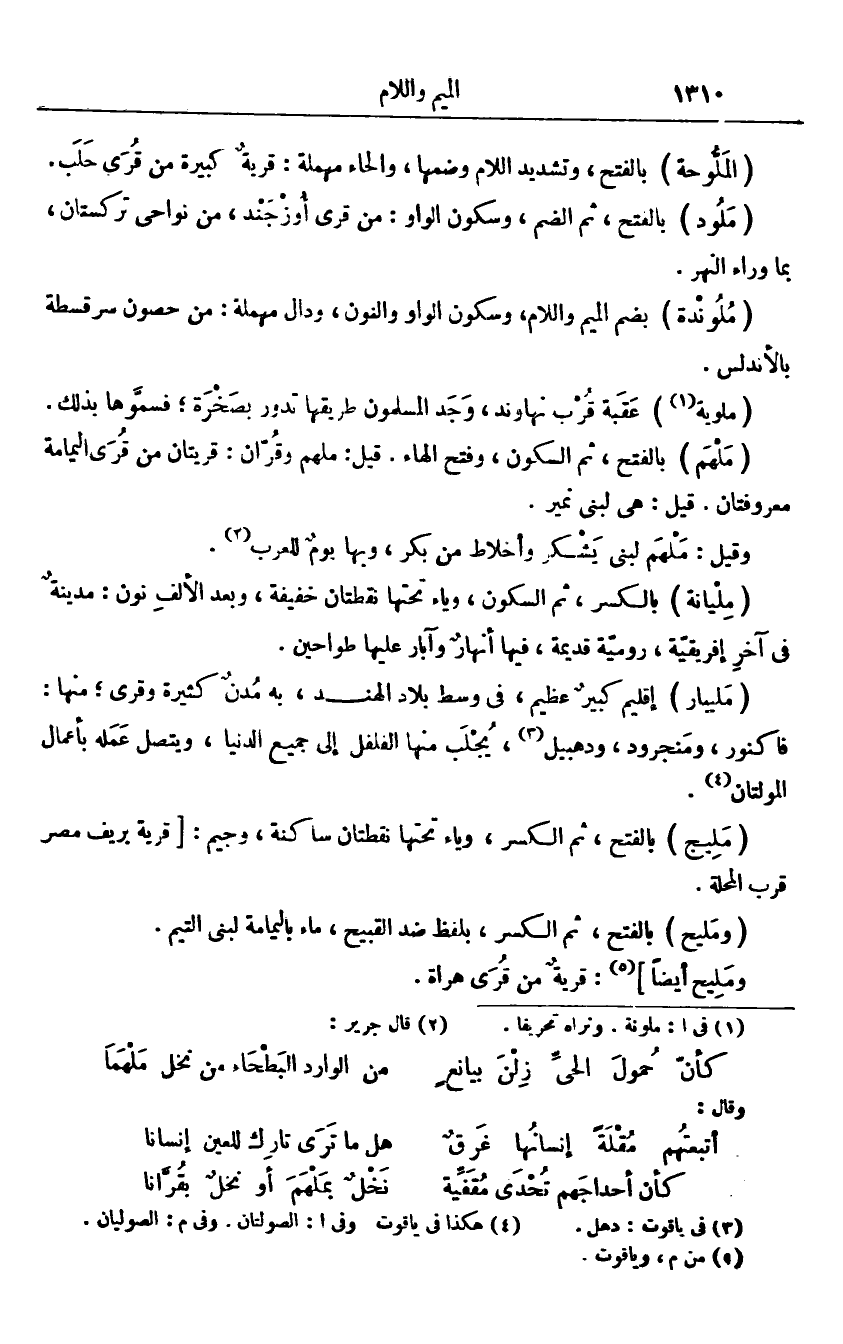 ١٣١٠ الميم واللام
( المَلُّوحة ) بالفتح ، وتشديد اللام وضمها ، والحاء مهملة : قريةٌ كبيرة من قُرَى حَلَب .
( مَلُود ) بالفتح ، ثم الضم ، وسكون الواو : من قرى أُوزْجَنْد ، من نواحى تركستان ،
بما وراء النهر .
( مُلُونْدة ) بضم الميم واللام، وسكون الواو والنون ، ودال مهملة : من حصون سرقسطة
بالأندلس .
( ملوية(١) ) عَقَبة قُرْب نهاوند ، وَجَد المسلمون طريقها تدور بصَخْرَة ؛ فسمَّوها بذلك .
( مَلْهَم ) بالفتح ، ثم السكون ، وفتح الهاء . قيل: ملهم وقُرّان : قريتان من قُرَى اليمامة
معروفتان . قيل : هى لبنى نمير .
وقيل : مَلْهَم لبنى يَشْكر وأخلاط من بكر ، وبها يومٌ للعرب(٢) .
( مِلْيانة ) بالكسر ، ثم السكون ، وياء تحتها نقطتان خفيفة ، وبعد الألفِ نون : مدينةٌ
فى آخرِ إفريقيّة ، روميّة قديمة ، فيها أنهارٌ وآبار عليها طواحين .
( مَليبار ) إقليم كبيرٌ عظيم ، فى وسط بلاد الهند ، به مُدنٌ كثيرة وقرى ؛ منها :
فاكنور ، ومَنجرود ، ودهبيل(٣) ، يُجْلَب منها الفلفل إلى جميع الدنيا ، ويتصل عَمَله بأعمال
المولتان(٤) .
( مَلِيج ) بالفتح ، ثم الكسر ، وياء تحتها نقطتان ساكنة ، وجيم : [ قرية بريف مصر
قرب المحلة .
( ومَليح ) بالفتح ، ثم الكسر ، بلفظ ضد القبيح ، ماء باليمامة لبنى التيم .
ومَلِيح أيضاً ](٥) : قريةٌ من قُرَى هراة .
(١) فى ا : ملونة . ونراه تحريفا . (٢) قال جرير :
كأنّ حُمولَ الحىّ زِلْنَ بيانعٍ من الوارد البَطْحَاء من نخل مَلْهَمَا
وقال :
أتبعتُهم مُقْلَةً إنسانُها غَرِقٌ هل ما تَرَى تارك للعين إنسانا
كأن أحداجَهم تُحْدَى مُقَفِّية نَخْلٌ بمَلْهَمَ أو نخلٌ بقُرّانا
(٣) فى ياقوت : دهل . (٤) هكذا فى ياقوت وفى ا : الصولتان . وفى م : الصوليان .
(٥) من م ، وياقوت .